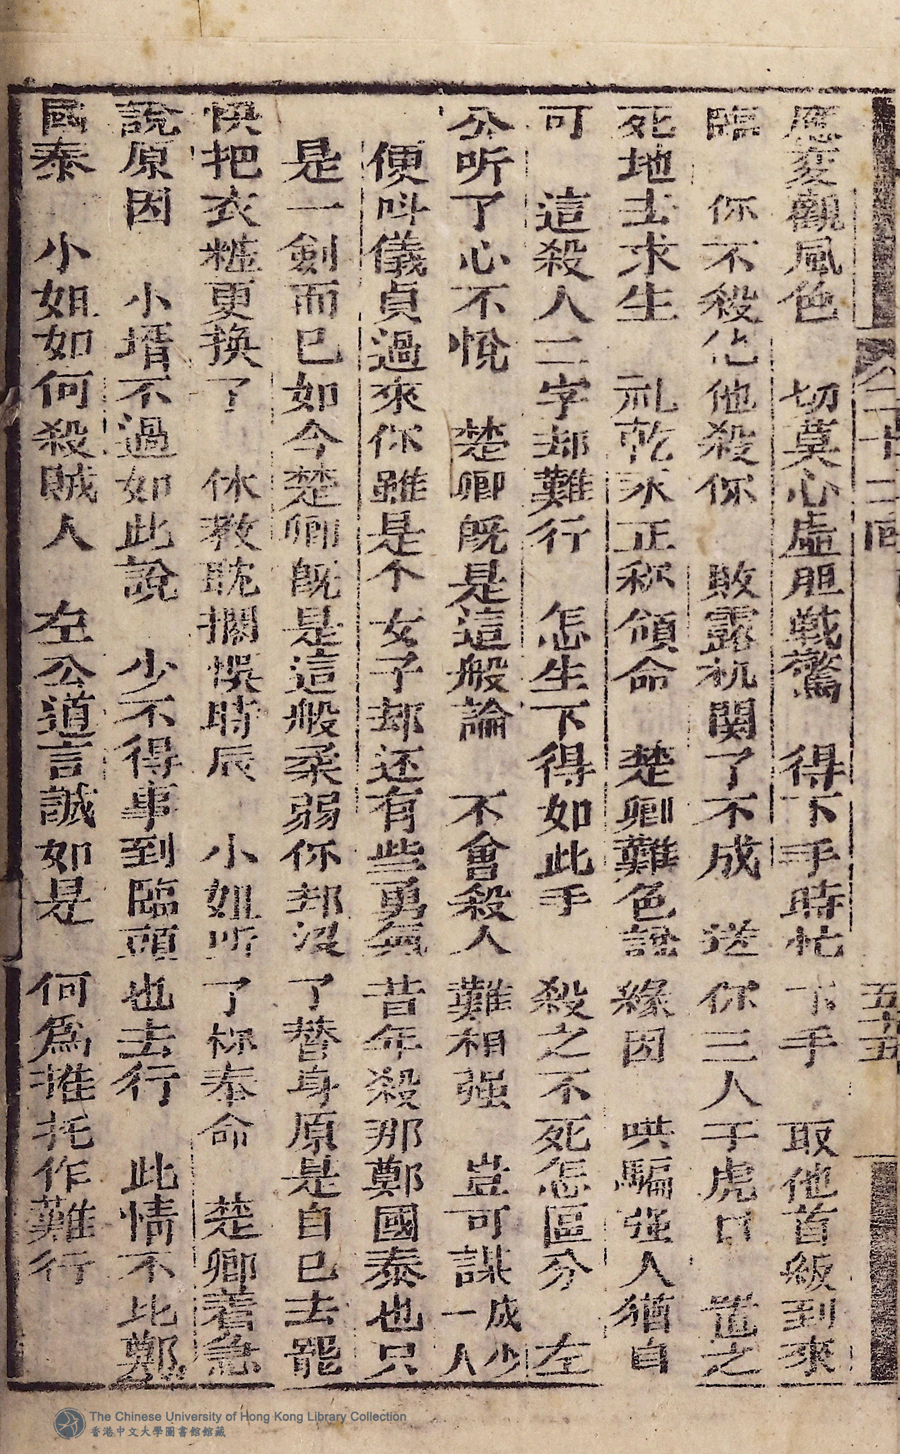 卷二十二回 五十五
應变觀風色 切莫心虛胆戰驚 得下手時忙下手 取他首級到來
臨 你不殺他他殺你 敗露机関了不成 送你三人于虎口 置之
死地去求生 礼乾永正称領命 楚卿難色說緣因 哄騙强人猶自
可 這殺人二字却難行 怎生下得如此手 殺之不死怎區分 左
公听了心不悅 楚卿既是這般論 不會殺人難相强 豈可謀成一少人
便叫儀貞過來你雖是个女子却还有些勇氣昔年殺那鄭國泰也只
是一劍而已如今楚卿既是這般柔弱你却没了替身原是自已去罷
快把衣粧更换了 休教耽擱悞時辰 小姐听了称奉命 楚卿着急
說原因 小壻不過如此說 少不得事到臨頭也去行 此情不比鄭
國泰 小姐如何殺賊人 左公道言誠如是 何爲推托作難行
The Chinese University of Hong Kong Library Collection
香港中文大學圖書館館藏